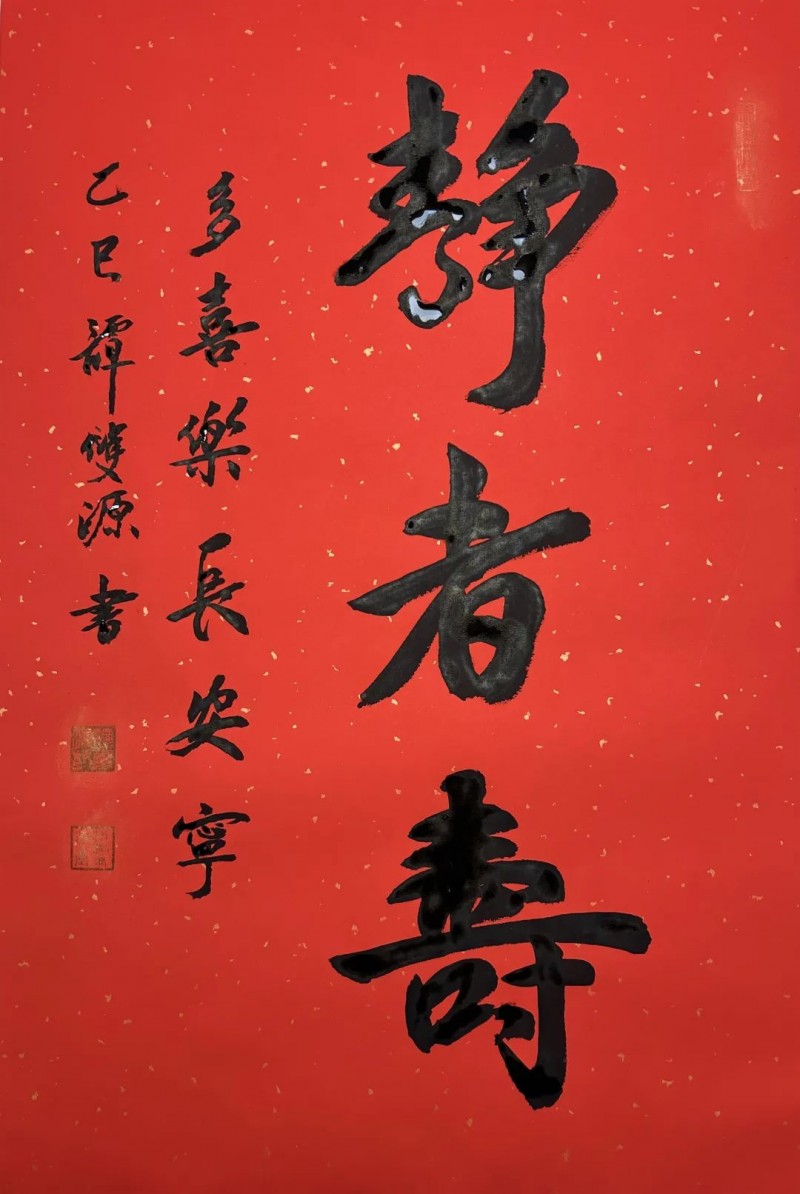 靜者壽
多喜樂長安寧
乙巳譚雙源書